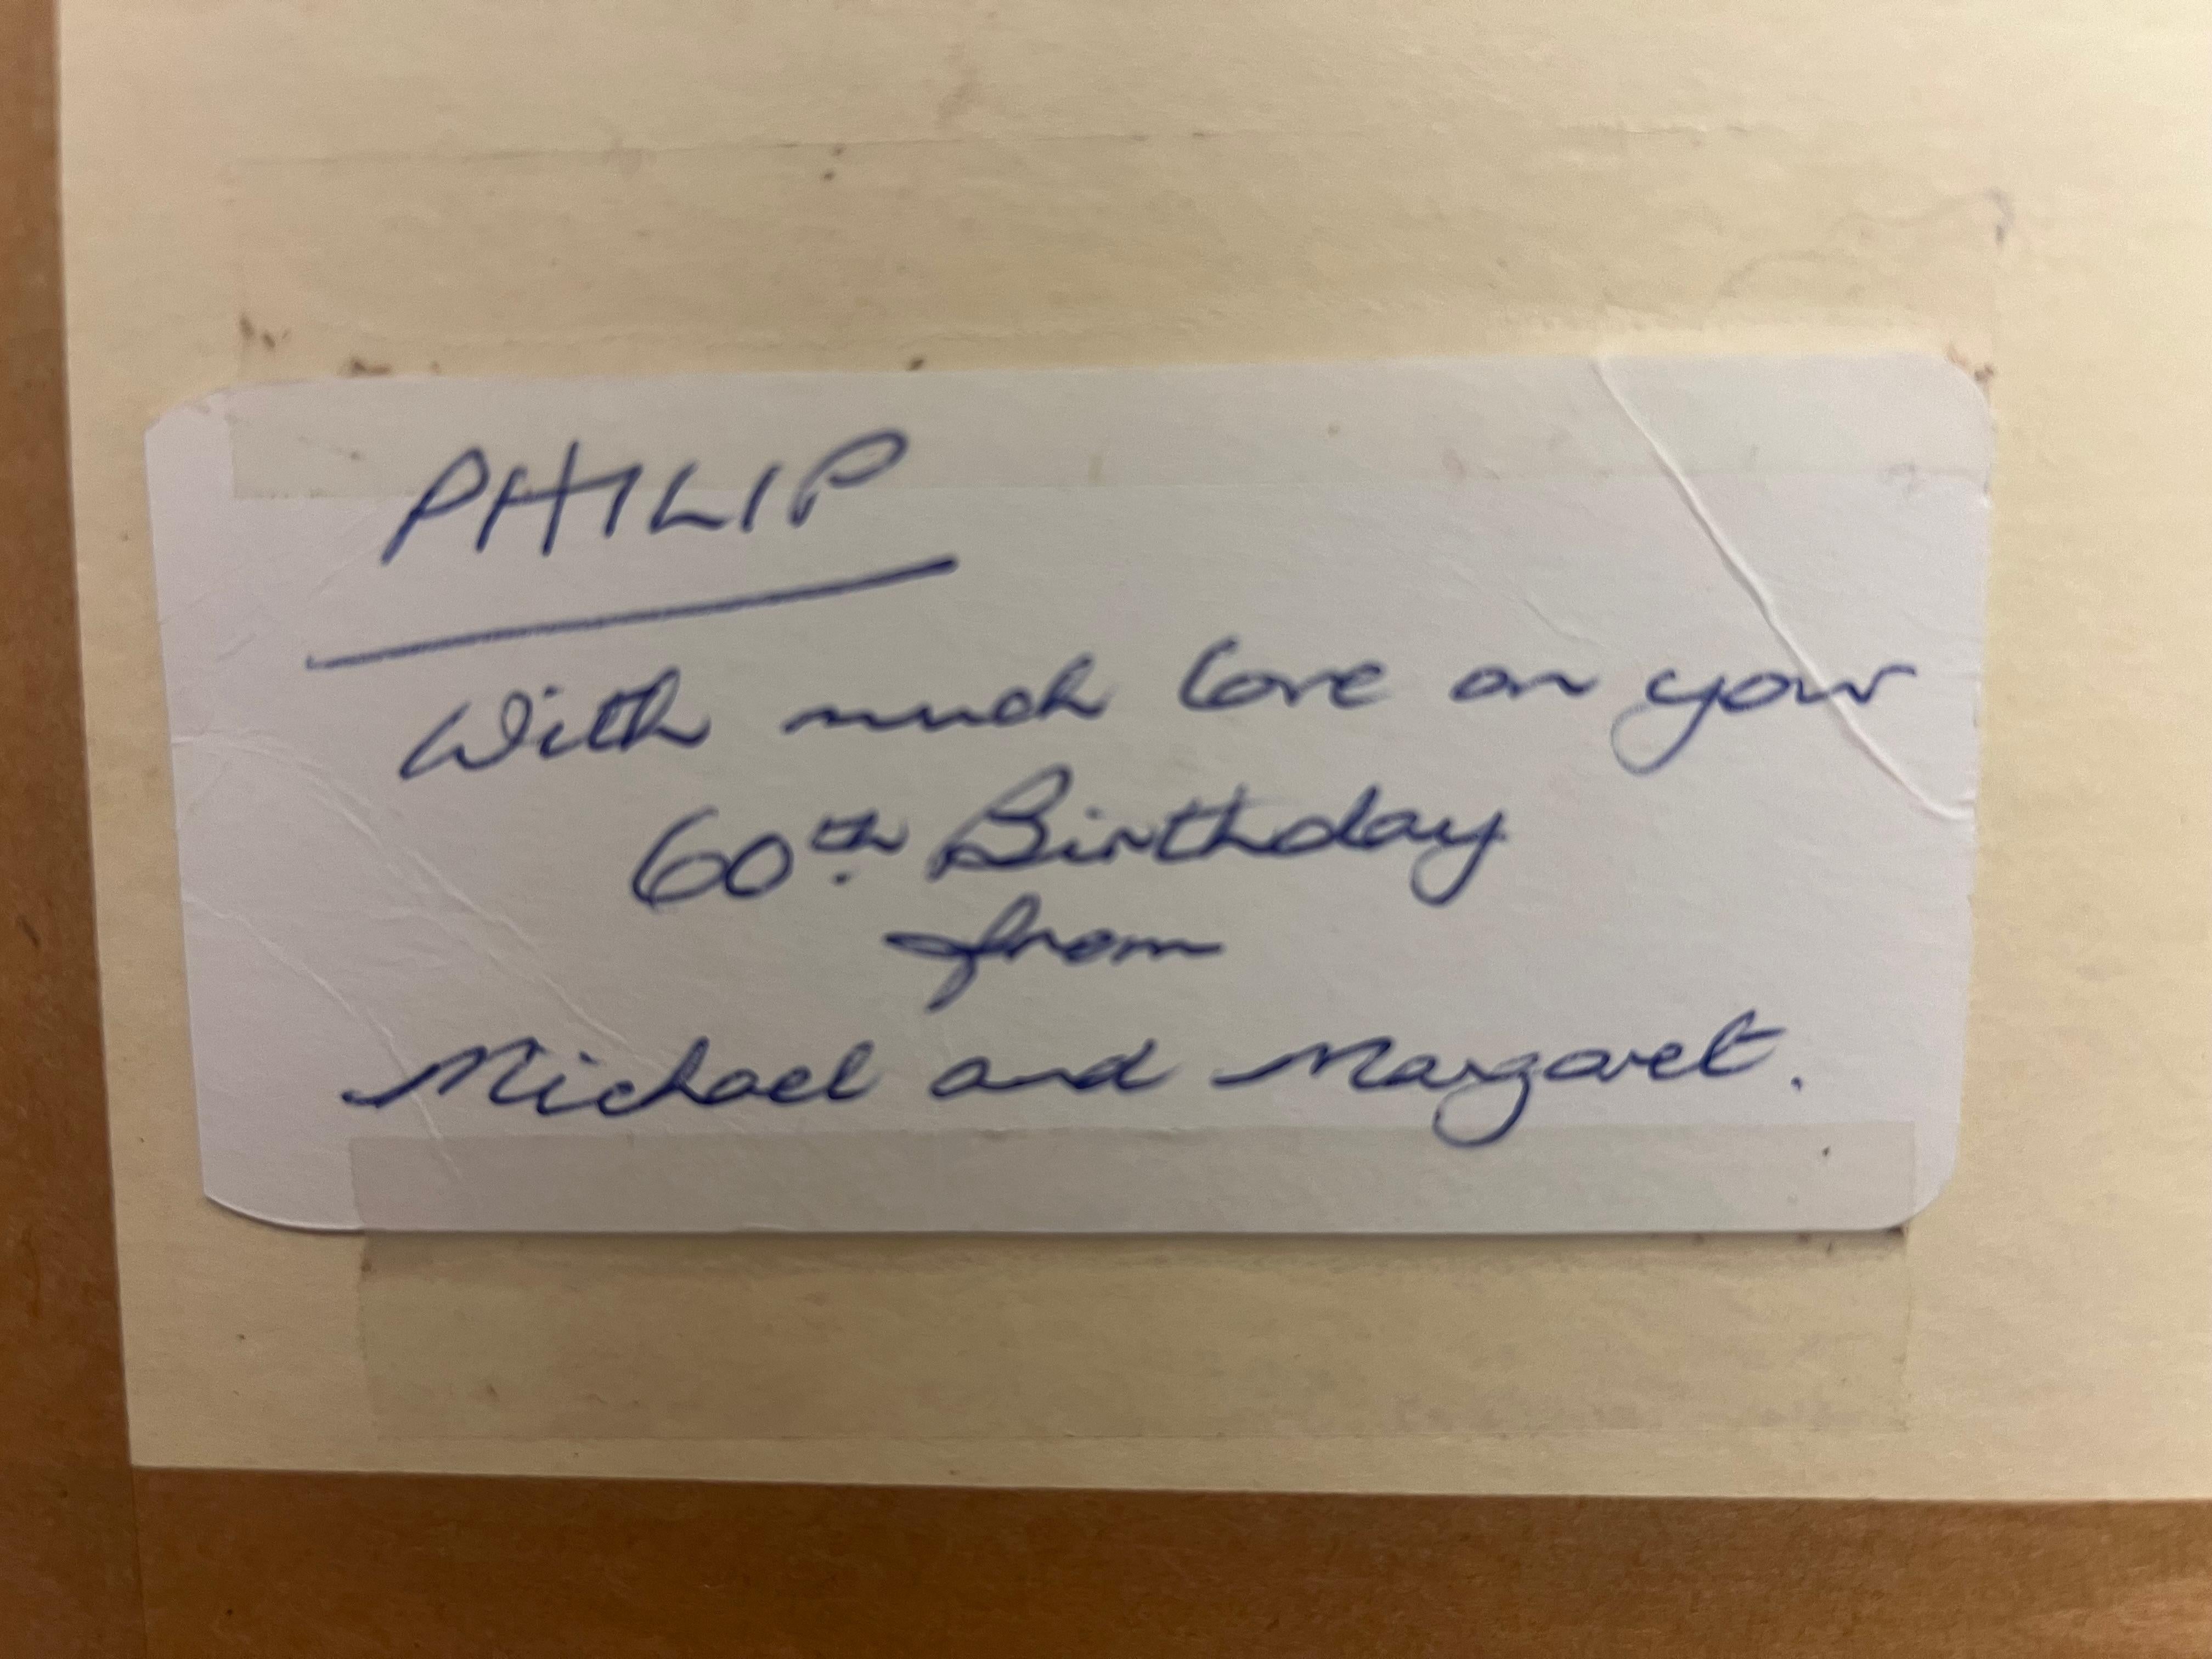 PHILIP
With much love on your
60th. Birthday
from
Michael and Margaret.